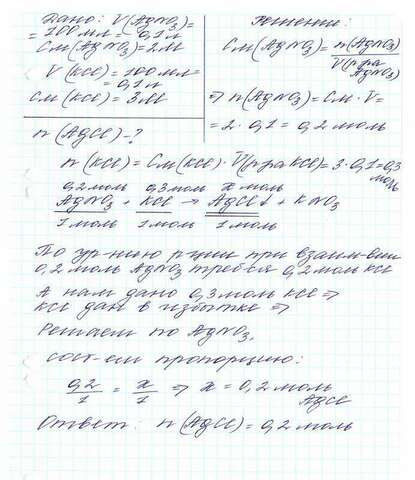 Дано: V(AgNO3)=
=100мл = 0,1л
См(AgNO3)=2М
V(KCl)=100мл=
=0,1л
См(KCl)=3М
n(AgCl)-?
Решение:
См(AgNO3)=n(AgNO3)/V(р-ра AgNO3)
⇒ n(AgNO3)=См·V=
=2·0,1=0,2 моль
n(KCl)=См(KCl)·V(р-ра KCl)=3·0,1=0,3 моль
0,2моль 0,3моль x моль
AgNO3 + KCl → AgCl↓ + KNO3
1моль 1моль 1моль
По ур-нию р-ции при взаим-вии
0,2 моль AgNO3 треб-ся 0,2 моль KCl
А нам дано 0,3 моль KCl ⇒
KCl дан в избытке ⇒
Решаем по AgNO3.
сост-им пропорцию:
0,2/1 = x/1 ⇒ x = 0,2 моль AgCl
Ответ: n(AgCl)=0,2 моль